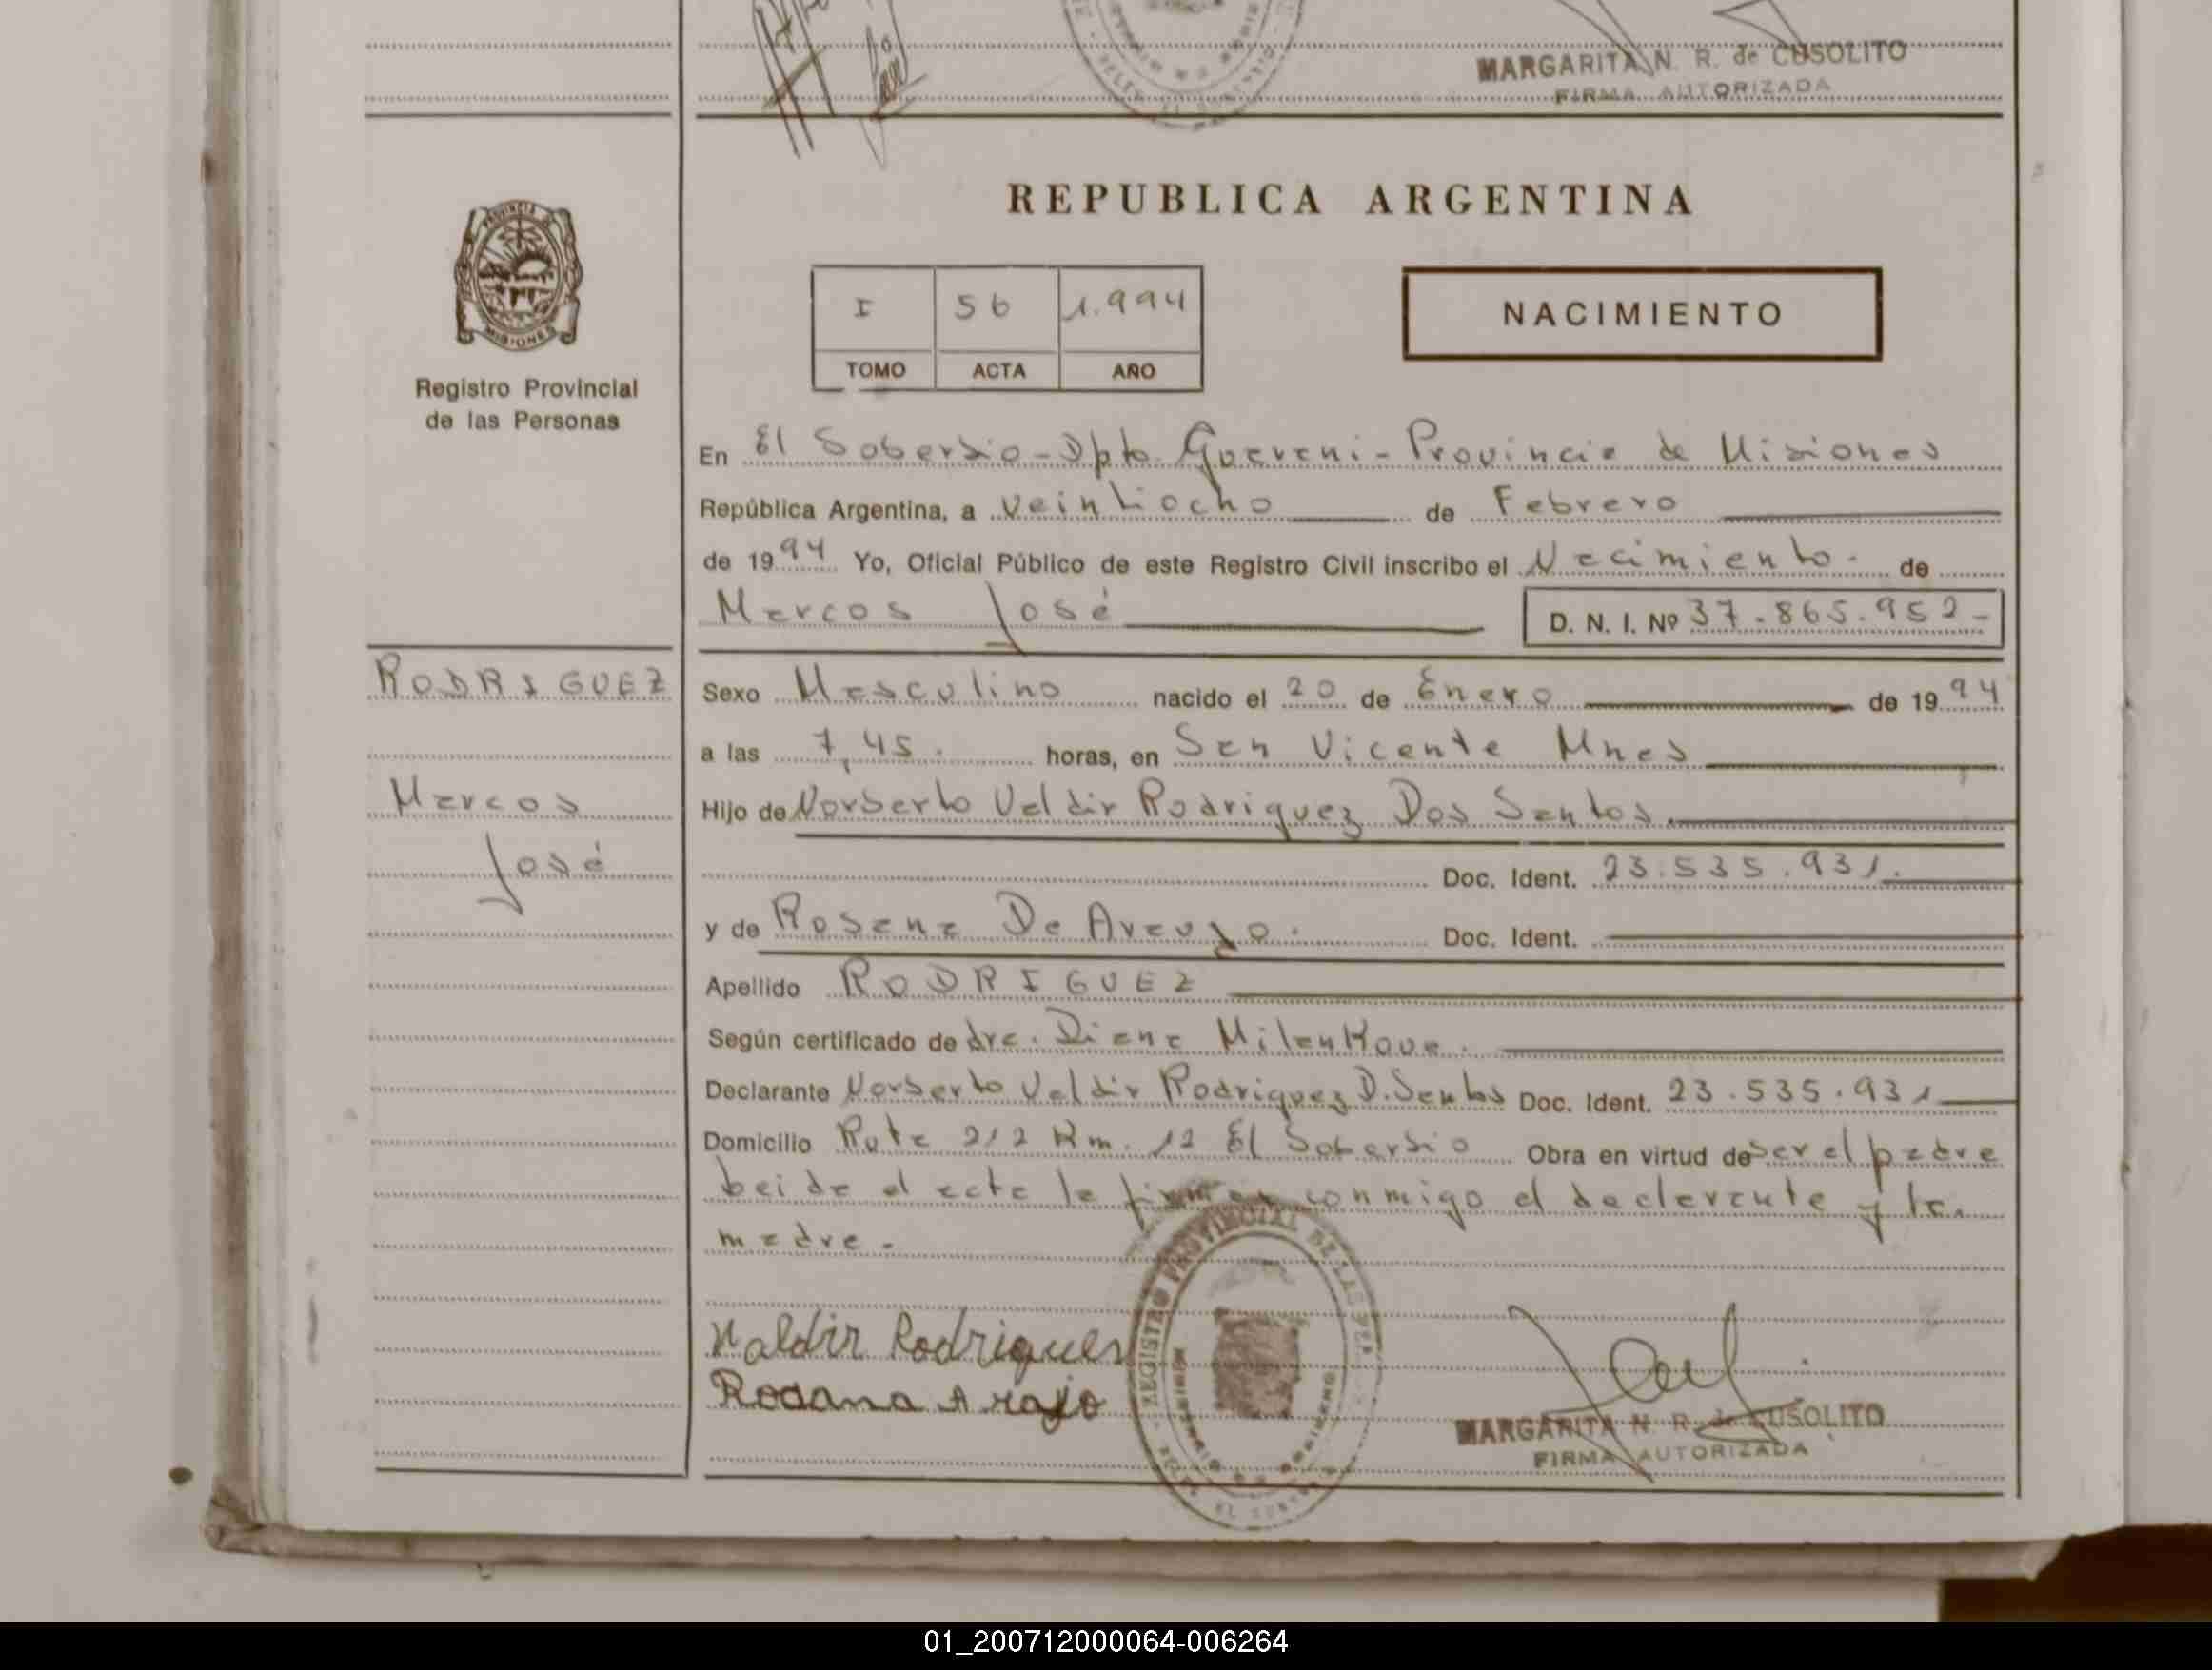 MARGARITA N. R. de CUSOLITO
FIRMA AUTORIZADA
PROVINCIA DE
MISIONES
Registro Provincial
de las Personas
REPUBLICA ARGENTINA
I 56 1.994
TOMO ACTA AÑO
NACIMIENTO
En El Soberbio - Dpto. Guarani - Provincia de Misiones
República Argentina, a veintiocho de Febrero
de 1994 Yo, Oficial Público de este Registro Civil inscribo el Nacimiento. de
Marcos José
D. N. I. Nº 37.865.952-
RODRIGUEZ
Marcos
José
Sexo Masculino nacido el 20 de Enero de 1994
a las 7,45. horas, en San Vicente Mnes
Hijo de Norberto Valdir Rodriguez Dos Santos.
Doc. Ident. 23.535.931.
y de Rosana De Araujo. Doc. Ident.
Apellido RODRIGUEZ
Según certificado de dra. Diana Milenkove.
Declarante Norberto Valdir Rodriguez D. Santos Doc. Ident. 23.535.931
Domicilio Ruta 212 Km. 12 El Soberbio Obra en virtud de ser el padre
leida el acta la firman conmigo el declarante y la.
madre.
Valdir Rodrigues
Rosana Arajo
REGISTRO PROVINCIAL DE LAS PER
MARGARITA N. R. de CUSOLITO
FIRMA AUTORIZADA
01_200712000064-006264